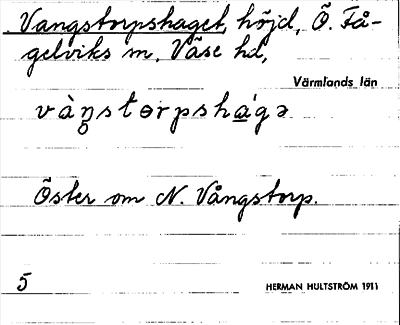 Vangstorpshaget, höjd, Ö. Få-
gelviks sn, Väse hd,
Värmlands län
våŋstɵrpshágə
Öster om N. Vångstorp.
5 HERMAN HULTSTRÖM 1911